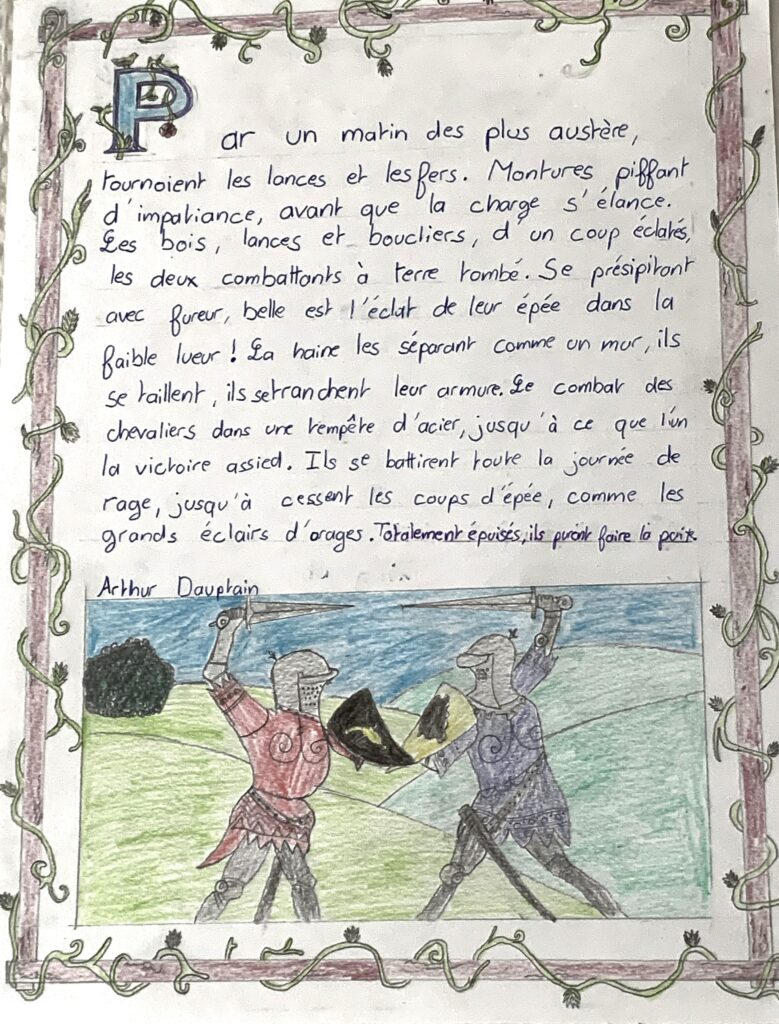 Par un matin des plus austère,
tournoient les lances et les fers. Montures piffant
d'impatiance, avant que la charge s'élance.
Les bois, lances et boucliers, d'un coup éclatés,
les deux combattants à terre tombé. Se présipitant
avec fureur, belle est l'éclat de leur épée dans la
faible lueur ! La haine les séparant comme un mur, ils
se taillent, ils se tranchent leur armure. Le combat des
chevaliers dans une tempête d'acier, jusqu'à ce que l'un
la victoire assied. Ils se battirent toute la journée de
rage, jusqu'à cessent les coups d'épée, comme les
grands éclairs d'orages. Totalement épuisés, ils faire la paix.
Arthur Dauptain